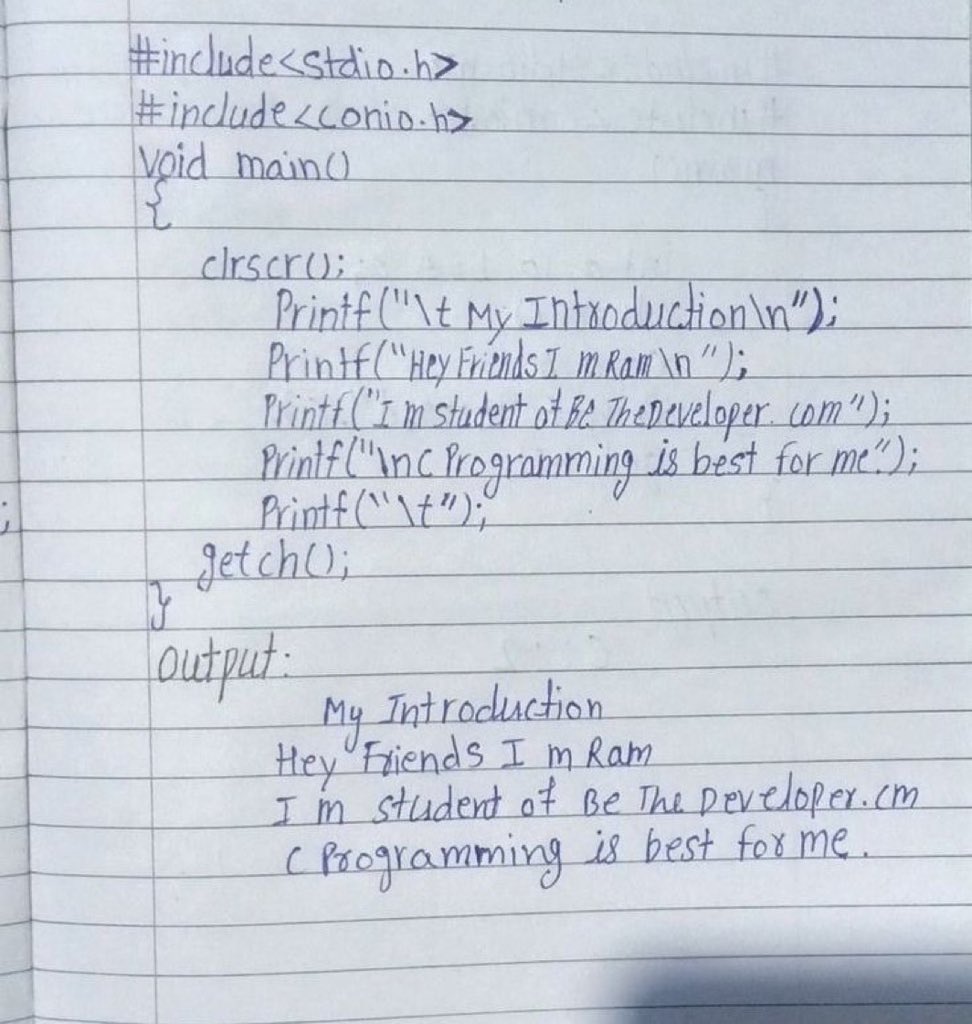 #include<stdio.h>
#include<conio.h>
void main()
{
clrscr();
Printf("\t My Introduction\n");
Printf("Hey Friends I m Ram \n");
Printf("I m student of Be TheDeveloper.com");
Printf("\nC Programming is best for me.");
Printf("\t");
;
getch();
}
output:
My Introduction
Hey Friends I m Ram
I m student of Be The Developer.cm
C Programming is best for me.